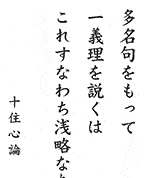 多名句をもって
一義理を説くは
これすなわち浅略なり
十住心論